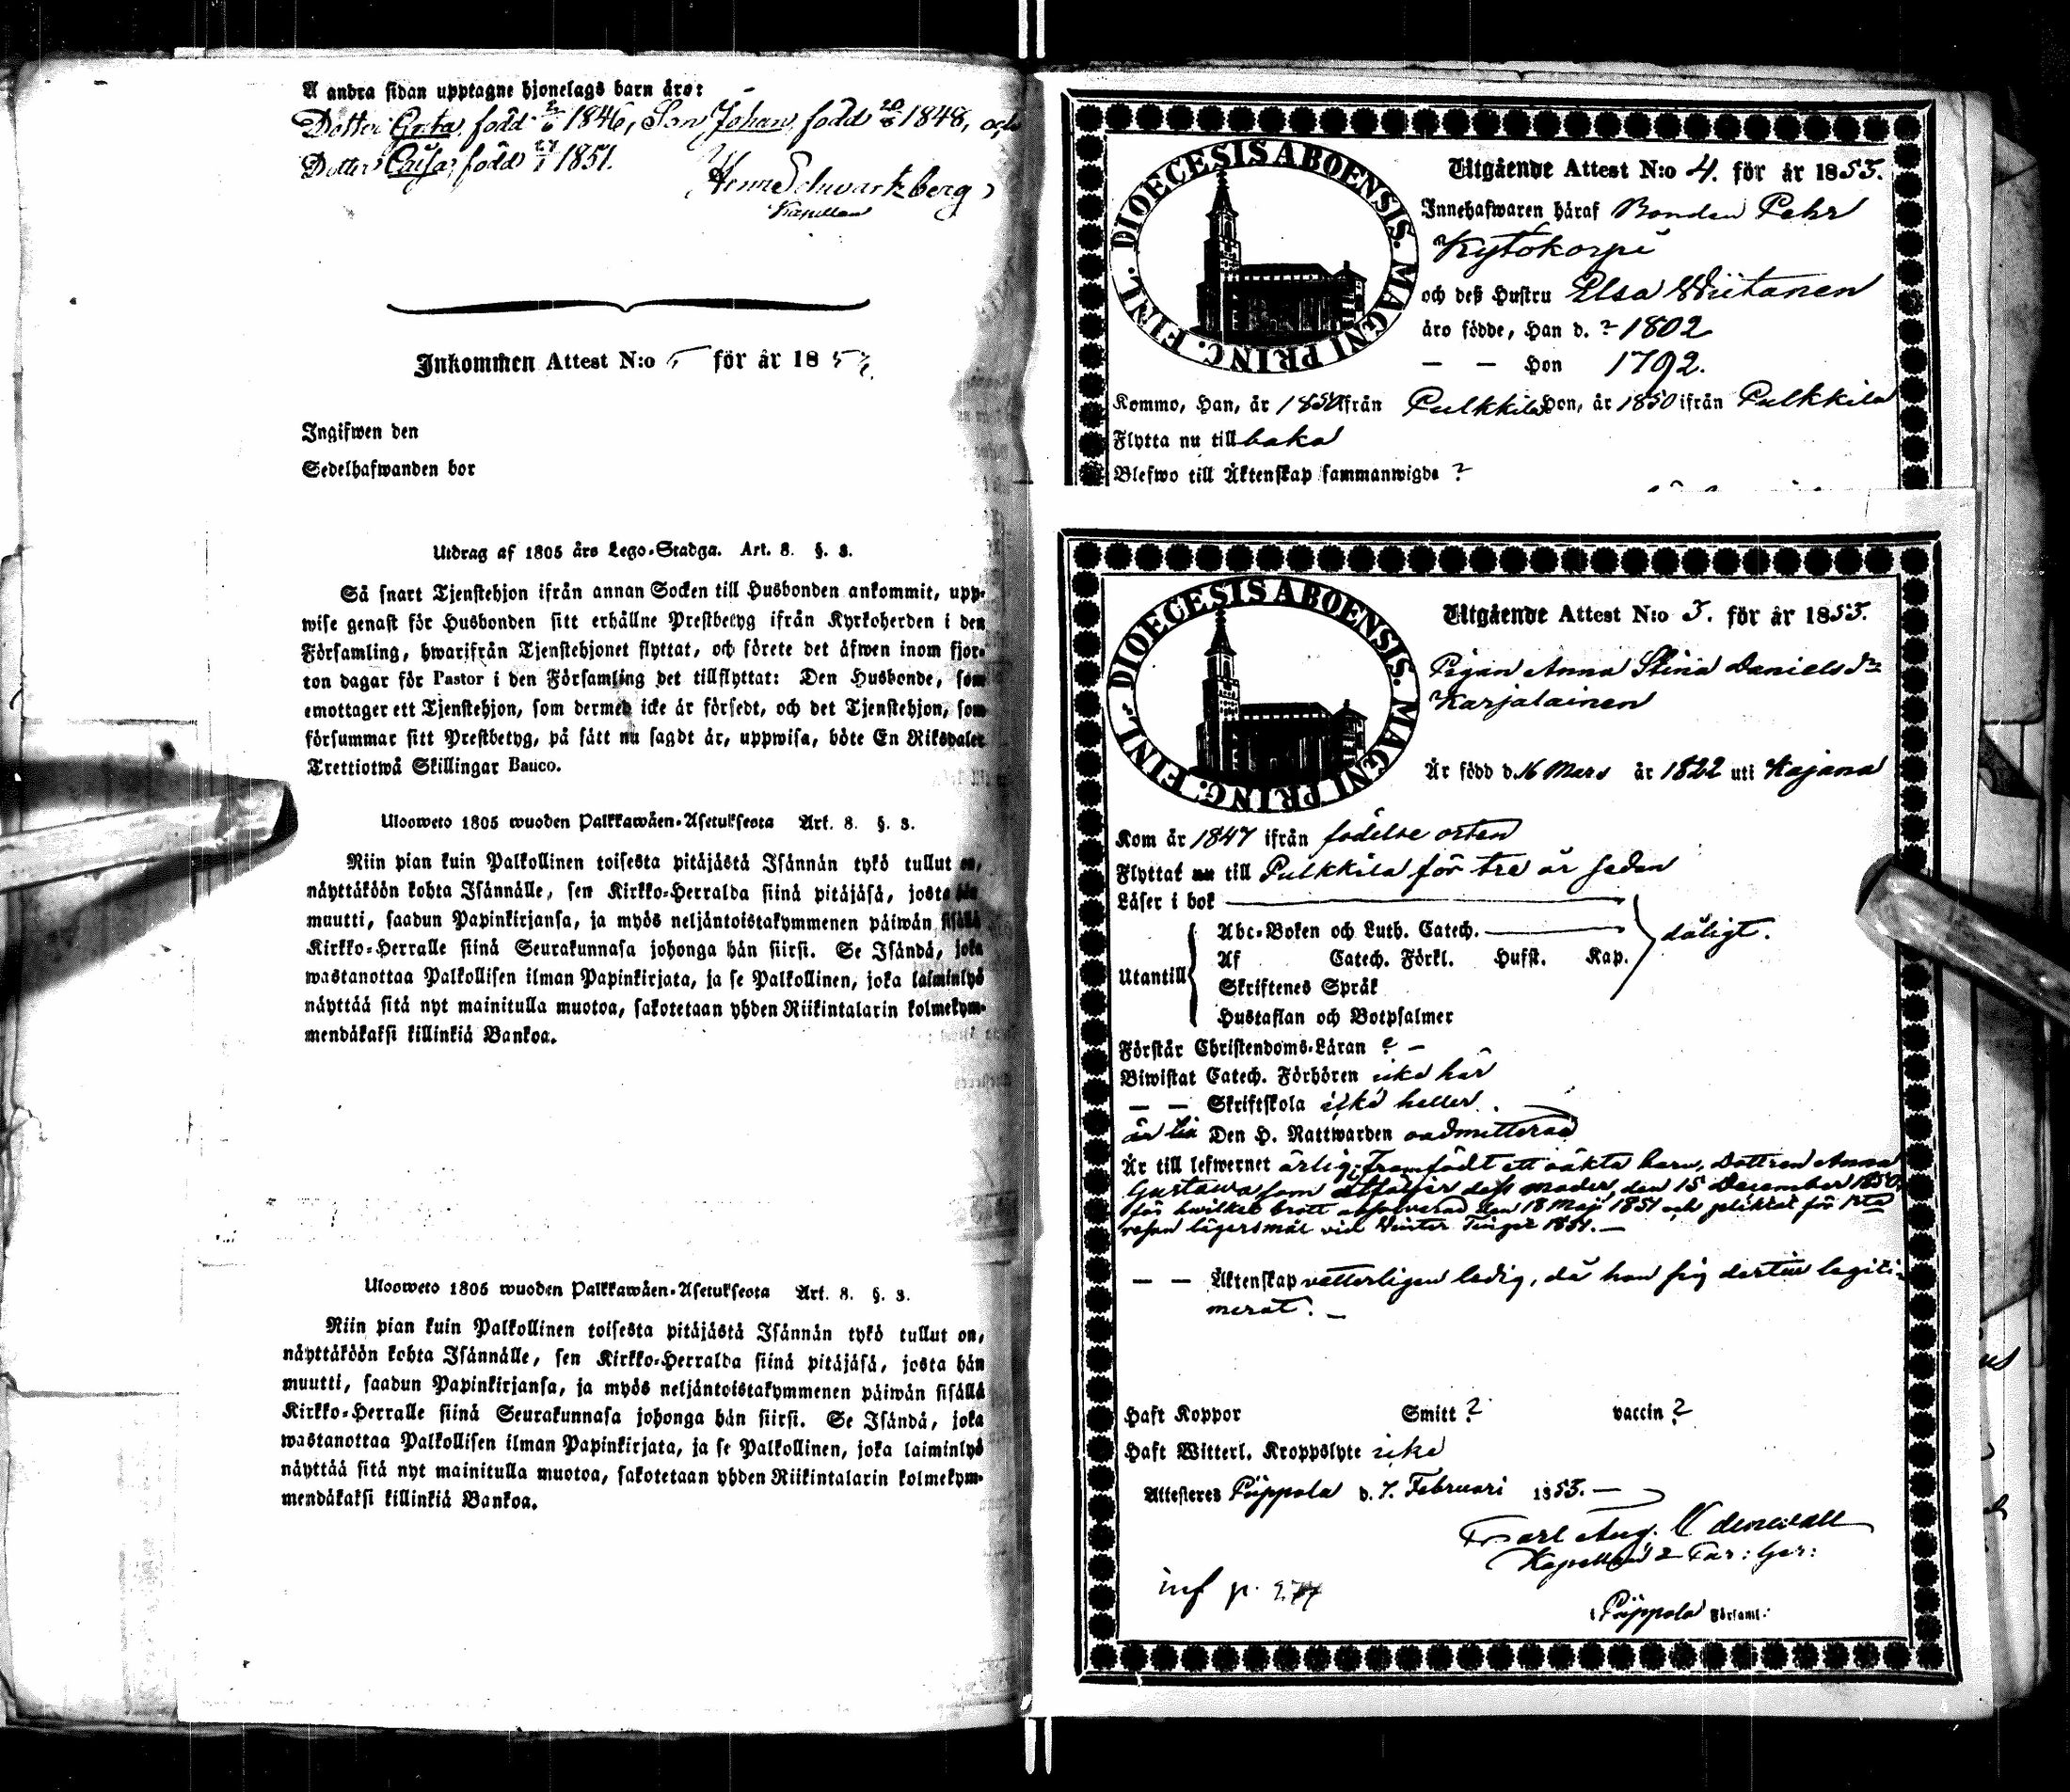 Å andra sidan upptagne hjonelags barn äro:
Dotter Greta, född 2/6 1846, Son Johan, född 20/8 1848, och
Dotter Caisa, född 27/1 1851.
Schwartzberg
Kapellan
Inkommen Attest N:o 5 för år 185
Ingifwen den
Sedelhafwanden bor
Utdrag af 1805 års Lego-Stadga. Art. 8. §. 3.
Så snart Tjenstehjon ifrån annan Socken till Husbonden ankommit, upp-
wise genast för Husbonden sitt erhållne Prestbetyg ifrån Kyrkoherden i den
Församling, hwarifrån Tjenstehjonet flyttat, och förete det äfwen inom fjor-
ton dagar för Pastor i den Församling det tillflyttat: Den Husbonde, som
emottager ett Tjenstehjon, som dermed icke är försedt, och det Tjenstehjon, som
försummar sitt Prestbetyg, på sätt nu sagdt är, uppwisa, böte En Riksdaler
Trettiotwå Skillingar Banco.
Ulosweto 1805 wuoden Palkkawäen-Asetuksesta Art. 8. §. 3.
Niin pian kuin Palkollinen toisesta pitäjästä Isännän tykö tullut on,
näyttäköön kohta Isännälle, sen Kirkko-Herralda siinä pitäjäsä, josta hän
muutti, saadun Papinkirjansa, ja myös neljäntoistakymmenen päiwän sisällä
Kirkko-Herralle siinä Seurakunnasa johonga hän siirsi. Se Isändä, joka
wastanottaa Palkollisen ilman Papinkirjata, ja se Palkollinen, joka laiminlyö
näyttää sitä nyt mainitulla muotoa, sakotetaan yhden Riikintalarin kolmekym-
mendäkaksi killinkiä Bankoa.
Ulosweto 1805 wuoden Palkkawäen-Asetuksesta Art. 8. §. 3.
Niin pian kuin Palkollinen toisesta pitäjästä Isännän tykö tullut on,
näyttäköön kohta Isännälle, sen Kirkko-Herralda siinä pitäjäsä, josta hän
muutti, saadun Papinkirjansa, ja myös neljäntoistakymmenen päiwän sisällä
Kirkko-Herralle siinä Seurakunnasa johonga hän siirsi. Se Isändä, joka
wastanottaa Palkollisen ilman Papinkirjata, ja se Palkollinen, joka laiminlyö
näyttää sitä nyt mainitulla muotoa, sakotetaan yhden Riikintalarin kolmekym-
mendäkaksi killinkiä Bankoa.
DIOECESIS ABOENSIS. MAGNI PRINC. FINL.
Utgående Attest N:o 4. för år 1853.
Innehafwaren häraf Bonden Pehr
Kytökorpi
och deß Hustru Elsa Wiitanen
äro födde, Han d. ? 1802
— — Hon 1792.
Kommo, Han, år 1850 ifrån Pulkkila Hon, år 1850 ifrån Pulkkila
Flytta nu till baka
Blefwo till Äktenskap sammanwigde ?
DIOECESIS ABOENSIS. MAGNI PRINC. FINL.
Utgående Attest N:o 3. för år 1853.
Pigan Anna Stina Danielsdr
Karjalainen
Är född d. 16 Mars år 1822 uti Kajana
Kom år 1847 ifrån födelse orten
Flyttat nu till Pulkkila för tre år sedan
Läser i bok
Abc-Boken och Luth. Catech.
dåligt.
Utantill
Af Catech. Förkl. Hufst. Kap.
Skriftenes Språk
Hustaflan och Botpsalmer
Förstår Christendoms-Läran ? —
Biwistat Catech. Förhören icke här
— — Skriftskola icke heller.
är till Den H. Nattwarden oadmitterad
Är till lefwernet ärlig; Framfödt ett oäkta barn, Dottren Anna
Gustawa som åtföljer dess moder, den 15 December 1850,
för hwilket brott absolverad den 18 Maji 1851 och pliktat för 1sta
resan lägersmål vid Winter Tinget 1851. —
— — Äktenskap vetterligen ledig, då hon sig dertill legiti-
merat. —
Haft Koppor Smitt ? vaccin ?
Haft Witterl. Kroppslyte icke
Attesteras Piippola d. 7. Februari 1853. —
Carl Aug. Odenwall
Kapellan
inf p. 274
i Piippola Församl.